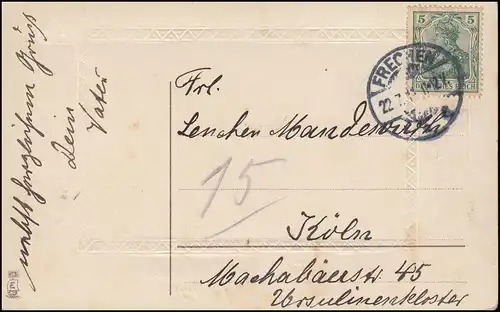 nebst herzlichem Gruß
Dein
Vater
5 5
DEUTSCHES REICH
FRECHEN
22.7.
Frl.
Lenchen Manderwirth
15
Köln
Machabäerstr. 45
Ursulinenkloster